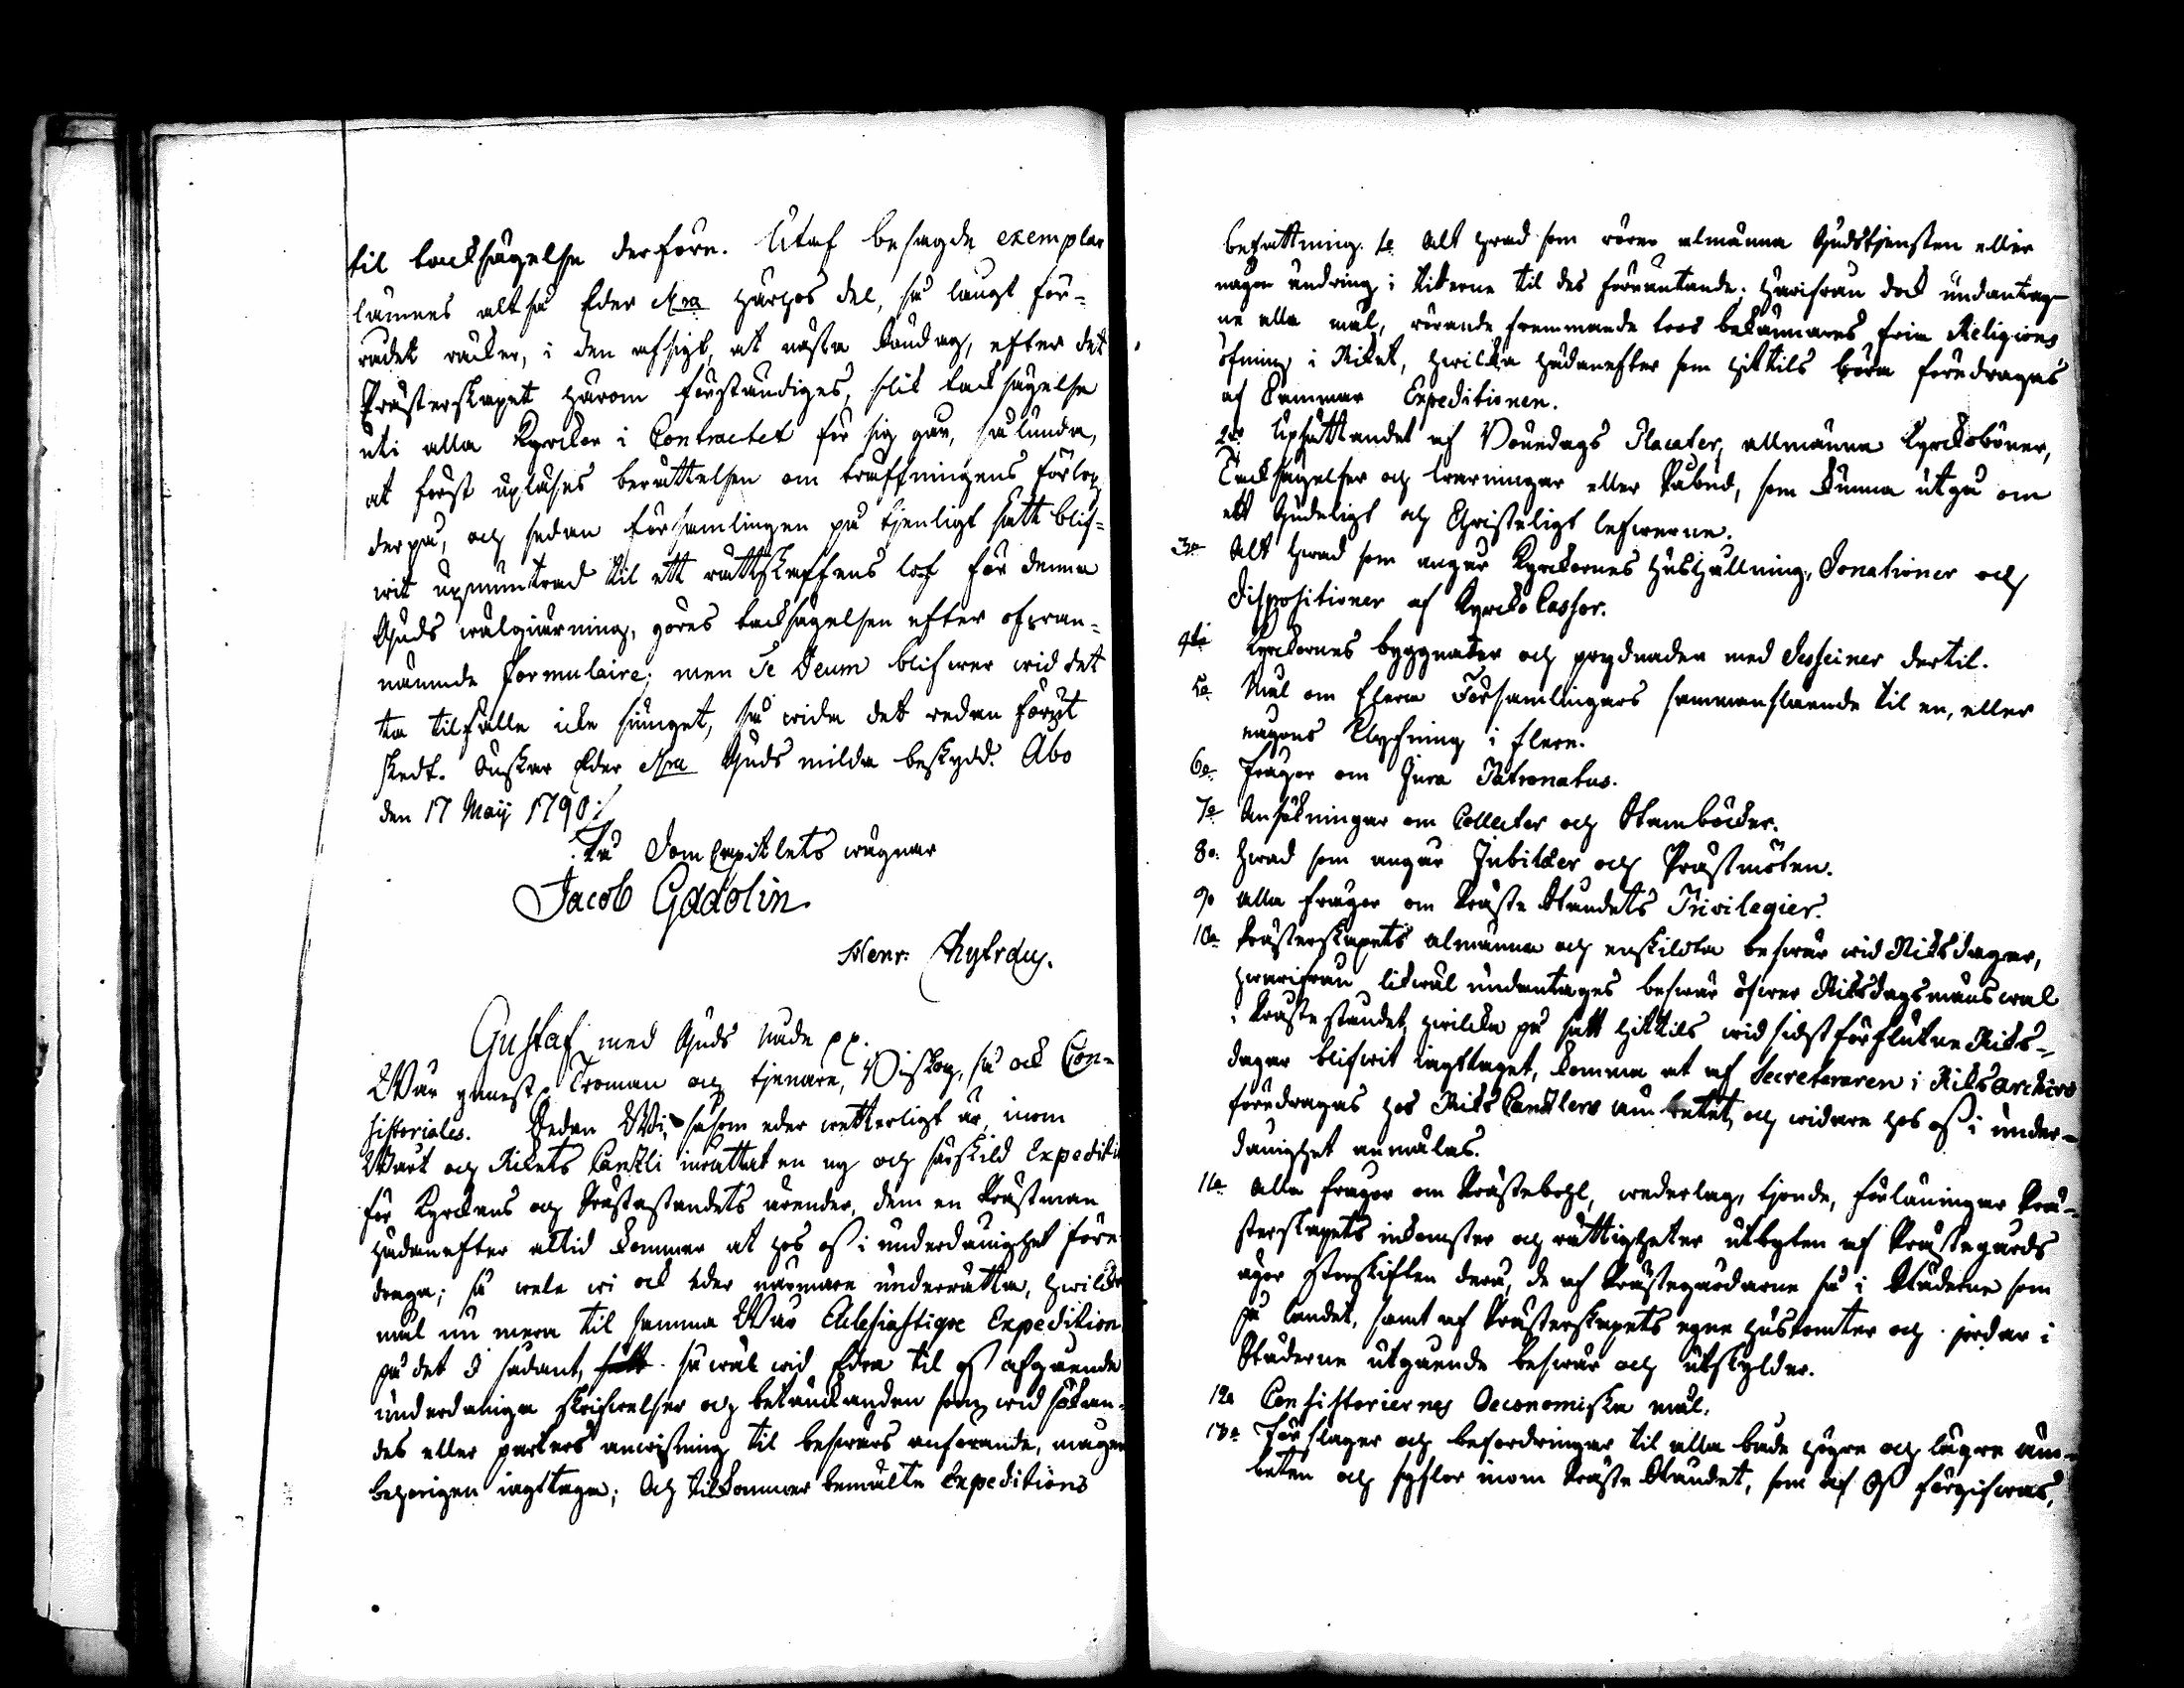 til tacksägelse derföre. Utaf besagde exemplar
lämnes altså Eder Ära härhos del, så långt för-
rådet räcker, i den afsigt, at nästa Söndag, efter det
Prästerskapet härom förständiges, slik tacksägelse
uti alla Kyrckor i Contractet för sig går, sålunda,
at först upläses berättelsen om träffningens förlop
derpå, och sedan församlingen på tjenligt sätt blif-
wit upmuntrad til ett rättskaffens lof för denna
Guds wälgiärning, göres tacksägelsen efter ofvan-
nämnde formulaire; men Te Deum blifwer wid det
ta tilfälle icke siunget, så wida det redan förut
skedt. Önskar Eder Ära Guds milda beskydd. Åbo
den 17 Maij 1790
På DomCapitlets wägnar
Jacob Gadolin
Henr:
Gustaf med Guds Nåde pp.
Wår ynnest, Troman och tjenare, Biskop, så ock Con-
sistoriales. Sedan Wi, såsom eder wetterligt är, inom
Wårt och Rikets Cantzli inrättat en ny och särskild Expediti
för Kyrckans och Prästeståndets ärender, dem en Prästman
hädanefter altid kommer at hos oss i underdånighet före
draga; så wele wi ock eder närmare underrätta, hwilcka
mål nu mera til samma Wår Ecclesiastique Expedition
på det I sådant, såwäl wid Edra til oss afgående
underdåniga skrifwelser och betänckanden som wid sökan-
des eller parters anwisning til beswärs anförande, mågen
behörigen iagttaga; Och tilkommer bemälte Expeditions
befattning. 1o Alt hwad som rörer almänna Gudstjensten eller
någon ändring i Riterne til des förrättande; Härifrån dock undantag-
ne alla mål, rörande fremmande tros bekännares fria Religions
öfning i Riket, hwilcka hädanefter som hittils böra föredragas
af Cammar Expeditionen.
2do Upsättandet af Bönedags Placater, allmänna Kyrckoböner,
Tacksägelser och warningar eller Påbud, som kunna utgå om
ett Gudeligt och Christeligt lefwerne.
3o Alt hwad som angår Kyrckornes hushållning, Donationer och
dispositioner af Kyrcko Cassor.
4to Kyrckornes byggnader och prydnader med Desseiner dertil.
5o Mål om flera Församlingars sammanslående til en, eller
någons klyfning i flere.
6o Frågor om Jura Patronatus.
7o Ansökningar om Collecter och Stamböcker.
8o Hwad som angår Jubiléer och Prästmöten.
9o Alla frågor om Präste Ståndets Privilegier.
10o Prästerskapets almänna och enskildta beswär wid Riksdagar,
hwarifrån likwäl undantages beswär öfwer Riksdagsmäns wal
i Präste ståndet, hwilcka på sätt hittils wid sidstförflutne Riks-
dagar blifwit iagttaget, komma at af Secreteraren i RiksArchivo
föredragas hos Riks Cantzlers ämbetet, och widare hos oss i under-
dånighet anmälas.
11o Alla frågor om Prästebohl, wederlag, tjonde, förläningar Prä-
sterskapets inkomster och rättigheter utbyten af Prästegårds
ägor storskiften derå, de af Prästegårdarne så i Städerne som
på landet, samt af Prästerskapets egne hustomter och jordar i
Städerne utgående beswär och utskylder.
12o Consistoriernes Oeconomiska mål.
13o Förslager och befordringar til alla både högre och lägre äm-
beten och syslor inom Präste Ståndet, som af Oss förgifwas,